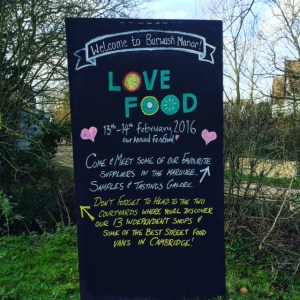 Welcome to Burwash Manor!
LOVE
FOOD
13th-14th February 2016
our Annual Foodfest
Come & Meet some of our Favourite
Suppliers in the marquee.
Samples & Tastings Galore.
Don't Forget to Head to the two
Courtyards where you'll discover
our 13 Independent Shops &
some of the Best Street Food
vans in Cambridge!